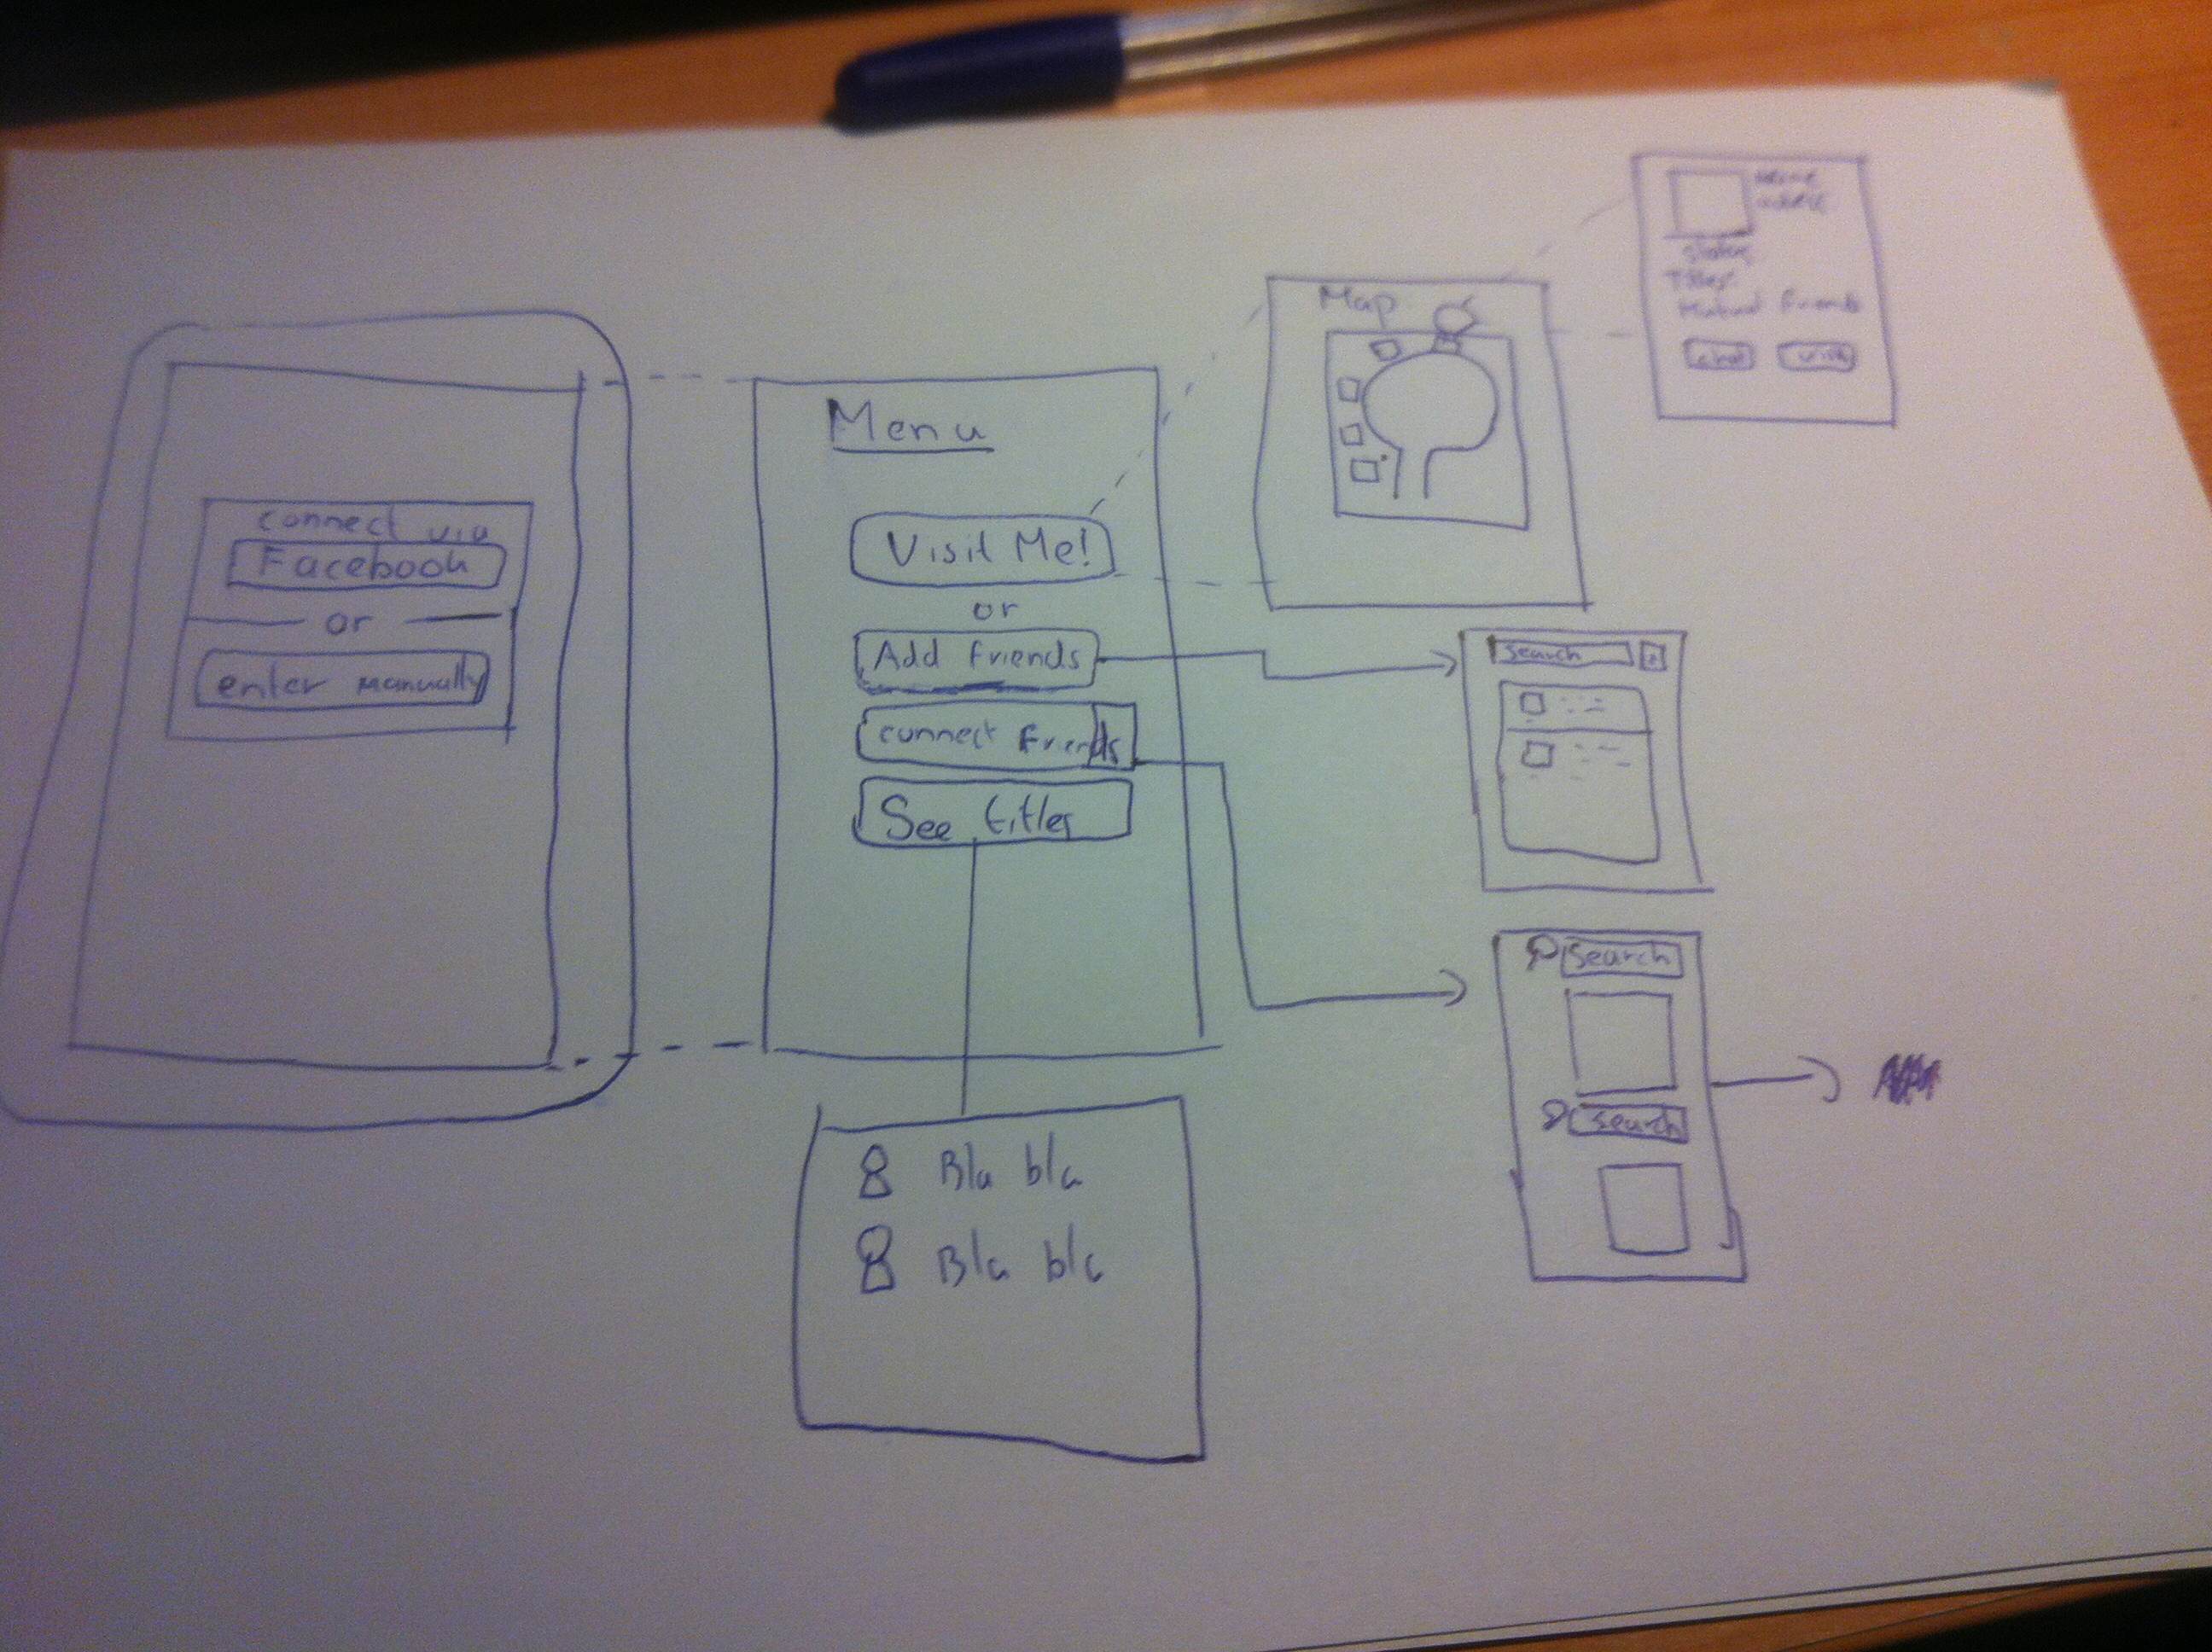 connect via
Facebook
or
enter manually
Menu
Visit Me!
or
Add friends
connect friends
See titles
Bla bla
Bla bla
Map
Name
status
Titles
Mutual friends
chat
visit
Search
Search
Search